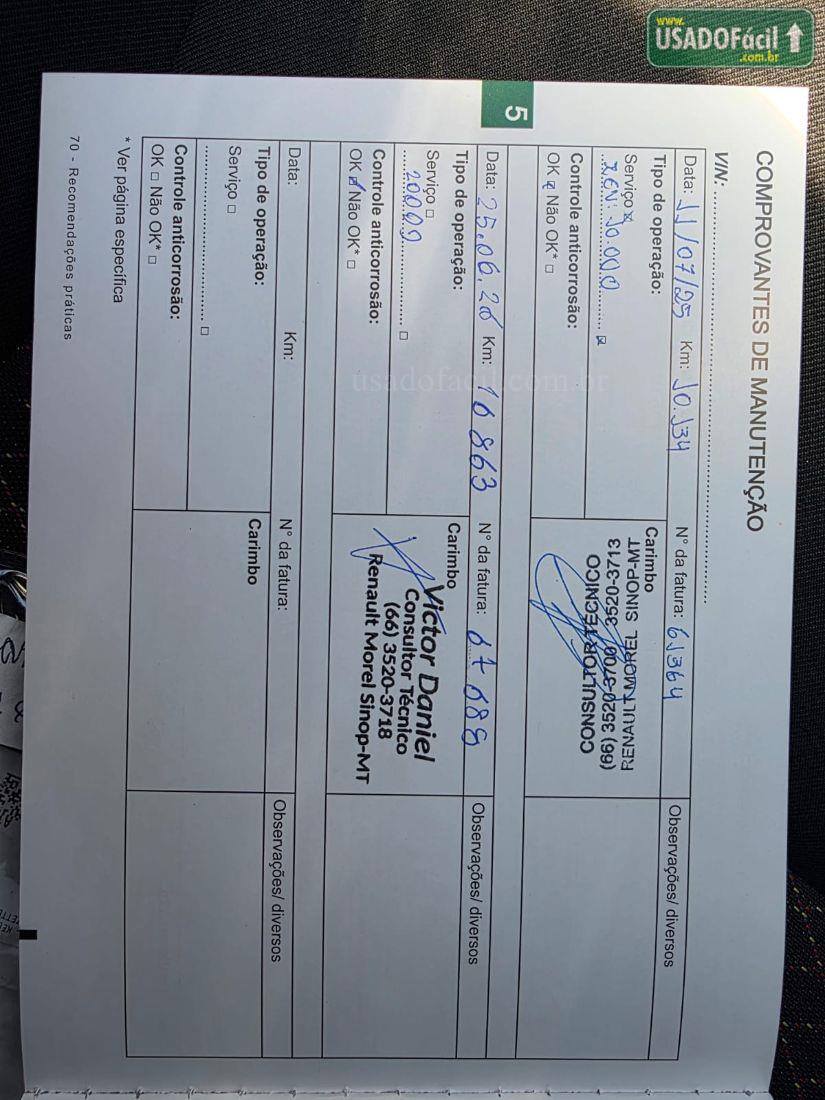 www.
USADOFácil
.com.br
COMPROVANTES DE MANUTENÇÃO
VIN:
Data: 11/07/25 Km: 10.134 N° da fatura: 61364 Observações/ diversos
Tipo de operação:
Serviço ☒
REV: 10.000 ☒
Controle anticorrosão:
OK ☒ Não OK* □
Carimbo
RENAULT MOREL SINOP-MT
(66) 3520-3700 / 3520-3713
CONSULTOR TÉCNICO
5
Data: 25.06.26 Km: 16 863 N° da fatura: Observações/ diversos
Tipo de operação:
Serviço □
20000 □
Controle anticorrosão:
OK ☑ Não OK* □
Carimbo
Victor Daniel
Consultor Técnico
(66) 3520-3718
Renault Morel Sinop-MT
Data: Km: N° da fatura: Observações/ diversos
Tipo de operação:
Serviço □
□
Controle anticorrosão:
OK □ Não OK* □
Carimbo
* Ver página específica
70 - Recomendações práticas
usadofacil.com.br